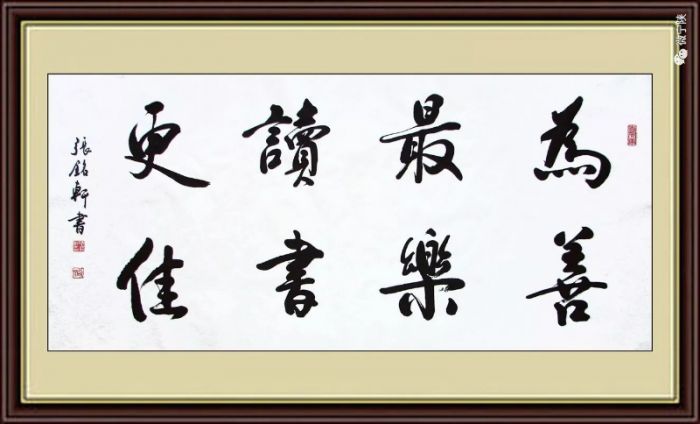 為善
最樂
讀書
更佳
張銘軒書
微宁陕